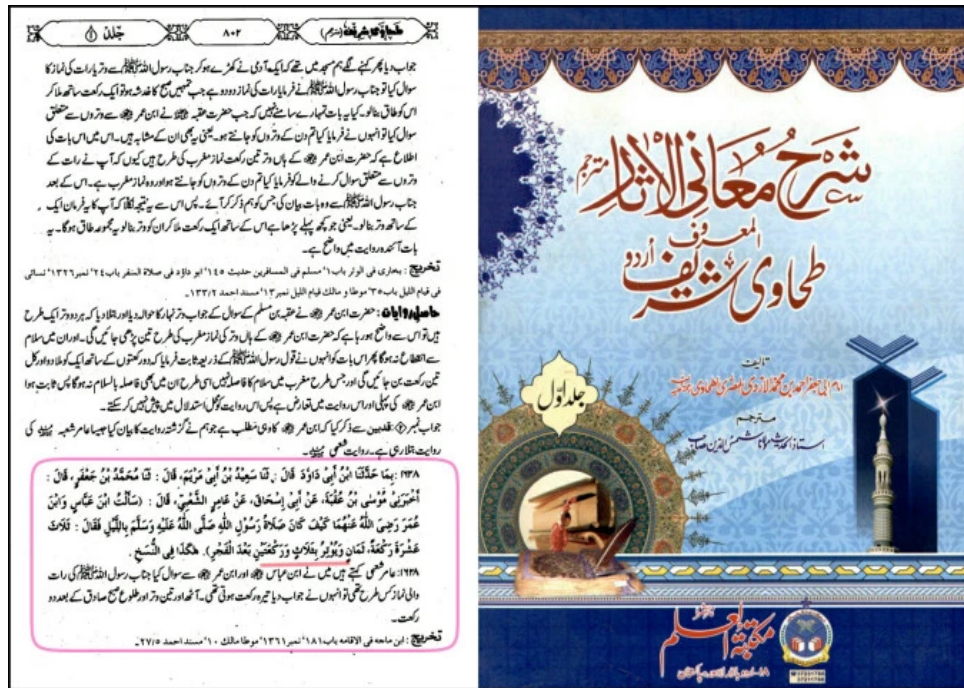 جلد ①
۸۰۲
طحاوی شریف (مترجم)
جواب دیا پھر کہنے لگے ہم مسجد میں تھے کہ ایک آدمی نے کھڑے ہو کر جناب رسول اللہ ﷺ سے وتر یا رات کی نماز کا
سوال کیا تو جناب رسول اللہ ﷺ نے فرمایا رات کی نماز دو دو ہے جب تمہیں صبح کا خدشہ ہو تو ایک رکعت ساتھ ملا کر
اس کو طاق بنالو۔ کیا یہ بات تمہارے سامنے نہیں کہ جب حضرت عقبہ نے ابن عمر سے وتروں سے متعلق
سوال کیا تو انہوں نے فرمایا کیا تم دن کے وتروں کو جانتے ہو۔ یعنی یہ بھی ان کے مشابہ ہیں۔ اس میں اس بات کی
اطلاع ہے کہ حضرت ابن عمر کے ہاں وتر تین رکعت نماز مغرب کی طرح ہیں کیوں کہ آپ نے رات کے
وتروں سے متعلق سوال کرنے والے کو فرمایا کیا تم دن کے وتروں کو جانتے ہو اور وہ نماز مغرب ہے۔ اس کے بعد
جناب رسول اللہ ﷺ سے وہ بات بیان کی جس کو ہم ذکر کر آئے۔ پس اس سے یہ نتیجہ نکلا کہ آپ کا یہ فرمان ایک
کے ساتھ وتر بنالو۔ یعنی جو کچھ پہلے پڑھا ہے اس کے ساتھ ایک رکعت ملا کر ان کو وتر بنالو یہ مجموعہ طاق ہوگا۔ یہ
بات آئندہ روایت میں واضح ہے۔
تخریج : بخاری فی الوتر باب۱' مسلم فی المسافرین حدیث ۱٤٥' ابو داؤد فی صلاة السفر باب۲٤' نمبر۱۳۲٦' نسائی
فی قیام اللیل باب۳٥' موطا و مالک قیام اللیل نمبر۱۳' مسند احمد ۱۳۳/۲۔
حاصل روایات : حضرت ابن عمر نے عقبہ بن مسلم کے سوال کے جواب وتر نہار کا حوالہ دیا اور بتلا دیا کہ ہر دو وتر ایک طرح
ہیں تو اس سے واضح ہو رہا ہے کہ حضرت ابن عمر کے ہاں وتر کی نماز مغرب کی طرح تین پڑھی جائیں گی۔ اور ان میں سلام
سے انقطاع نہ ہوگا پھر اس بات کو انہوں نے قول رسول اللہ ﷺ کے ذریعہ ثابت فرمایا کہ دو رکعتوں کے ساتھ ایک کو ملا دو اور کل
تین رکعت بن جائیں گی اور جس طرح مغرب میں سلام کا فاصلہ نہیں اسی طرح ان میں بھی فاصلہ بالسلام نہ ہوگا پس ثابت ہوا
ابن عمر کی پہلی اور اس روایت میں تعارض ہے پس اس روایت کو محل استدلال میں پیش نہیں کر سکتے۔
جواب نمبر ②: قلدبین سے ذکر کیا کہ ابن عمر کا وہی مطلب ہے جو ہم نے گزشتہ روایت کا بیان کیا جیسا عامر شعبہ کی
روایت بتلا رہی ہے۔ روایت شعبی
۱۶۳۸: بِمَا حَدَّثَنَا ابْنُ أَبِي دَاوُدَ قَالَ : ثَنَا سَعِيدُ بْنُ أَبِي مَرْيَمَ، قَالَ : ثَنَا مُحَمَّدُ بْنُ جَعْفَرٍ، قَالَ :
أَخْبَرَنِي مُوْسَى بْنُ عُقْبَةَ، عَنْ أَبِي إِسْحَاقَ، عَنْ عَامِرٍ الشَّعْبِيِّ، قَالَ : (سَأَلْتُ ابْنَ عَبَّاسٍ وَابْنَ
عُمَرَ رَضِيَ اللَّهُ عَنْهُمَا كَيْفَ كَانَ صَلَاةُ رَسُولِ اللَّهِ صَلَّى اللَّهُ عَلَيْهِ وَسَلَّمَ بِاللَّيْلِ فَقَالَ : ثَلَاثَ
عَشْرَةَ رَكْعَةً، ثَمَانٍ وَيُوْتِرُ بِثَلَاثٍ وَرَكْعَتَيْنِ بَعْدَ الْفَجْرِ). هٰكَذَا فِي النُّسَخِ .
۱۶۳۸: عامر شعبی کہتے ہیں میں نے ابن عباس اور ابن عمر سے سوال کیا جناب رسول اللہ ﷺ کی رات
والی نماز کس طرح تھی تو انہوں نے جواب دیا تیرہ رکعت ہوتی تھی۔ آٹھ اور تین وتر اور طلوع صبح صادق کے بعد دو
رکعت۔
تخریج : ابن ماجہ فی الاقامہ باب۱۸۱' نمبر۱۳٦۱' موطا مالك ۱۰' مسند احمد ۲۷/٥۔
شرح معانی الآثار مترجم
المعروف
طحاوی شریف اردو
تالیف
امام ابی جعفر احمد بن محمد الازدی المصری الطحاوی
مترجم
استاذ الحدیث مولانا شمس الدین صاحب
جلد اول
مکتبۃ العلم
۱۸۔ اردو بازار لاہور پاکستان